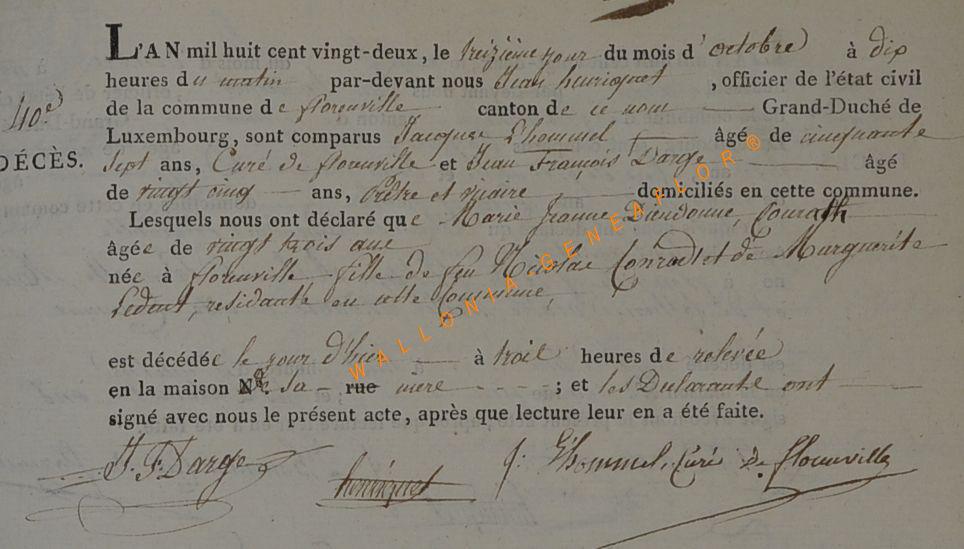 L'AN mil huit cent vingt-deux, le treizième jour du mois d'octobre à dix
heures du matin par-devant nous Jean henriquet, officier de l'état civil
40e
de la commune de florenville canton de ce nom Grand-Duché de
Luxembourg, sont comparus Jacques Lhommel âgé de cinquante
DÉCÈS.
sept ans, Curé de florenville et Jean François Darge âgé
de vingt cinq ans, Prêtre et vicaire domiciliés en cette commune.
Lesquels nous ont déclaré que Marie Jeanne Dieudonné Conrath
âgée de vingt trois ans
née à florenville fille de feu Nicolas Conrad et de Marguerite
Ledent, residante en cette Commune,
est décédée le jour d'hier à trois heures de relevée
en la maison N° sa rue mere ; et les Dularante ont
signé avec nous le présent acte, après que lecture leur en a été faite.
J. F. Darge henriquet J: Lhommel, Curé de florenville
WALLONIA GENEALOR ®